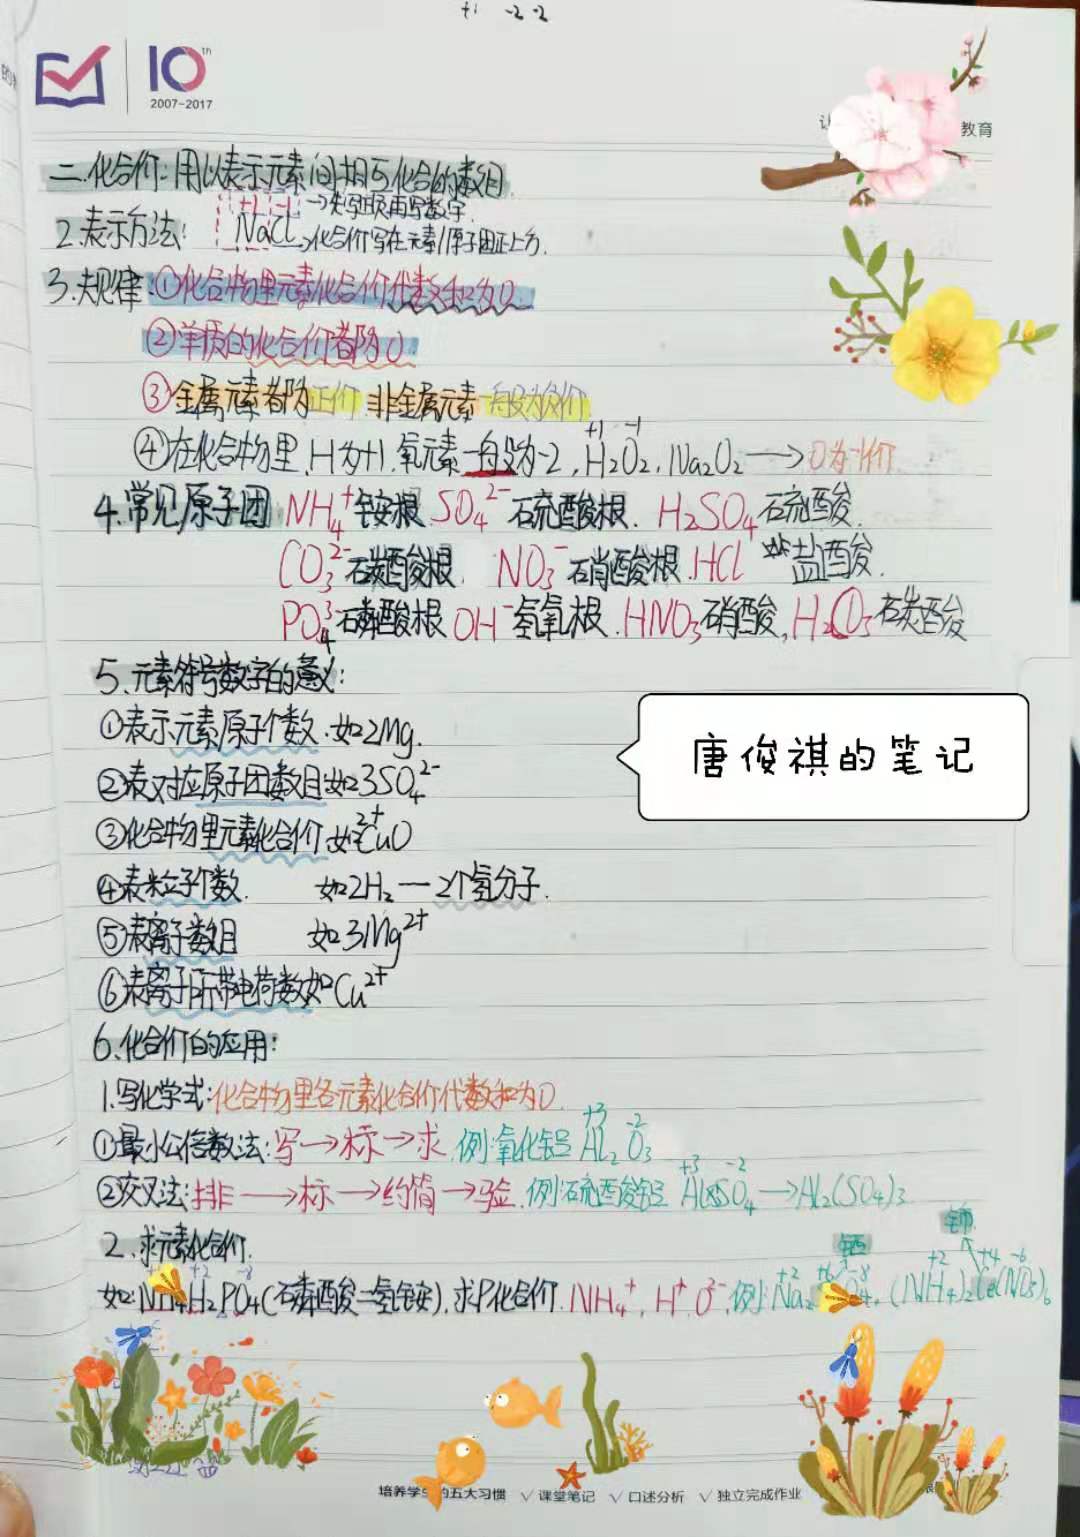 +1 -2 -2
10th
2007-2017
教育
二.化合价:用以表示元素间相互化合的数目.
+1 -1 →先写正负再写数字.
2.表示方法: NaCl →化合价写在元素/原子团正上方.
3.规律:①化合物里元素化合价代数和为0.
②单质的化合价都为0.
③金属元素都为正价 非金属元素一般为负价
+1 -1
④在化合物里,H为+1.氧元素一般为-2,H₂O₂,Na₂O₂→O为-1价
4.常见原子团 NH₄⁺铵根 SO₄²⁻硫酸根. H₂SO₄硫酸.
CO₃²⁻碳酸根. NO₃⁻硝酸根.HCl 盐酸.
PO₄³⁻磷酸根 OH⁻氢氧根.HNO₃硝酸,H₂CO₃碳酸
5.元素符号数字的意义:
①表示元素原子个数.如2Mg.
②表对应原子团数目如3SO₄²⁻
唐俊祺的笔记
2+
③化合物里元素化合价 如CuO
④表粒子个数. 如2H₂—2个氢分子.
⑤表离子数目 如3Mg²⁺
⑥表离子所带电荷数如Cu²⁺
6.化合价的应用:
1.写化学式:化合物里各元素化合价代数和为0.
+3 -2
①最小公倍数法:写→标→求.例:氧化铝 Al₂O₃
+3 -2
②交叉法:排→标→约简→验.例:硫酸铝 AlSO₄→Al₂(SO₄)₃
2.求元素化合价.
+2 -8
如:NH₄H₂PO₄(磷酸二氢铵),求P化合价.NH₄⁺,H⁺,O²⁻,例:Na₂
培养学生的五大习惯 √课堂笔记 √口述分析 √独立完成作业